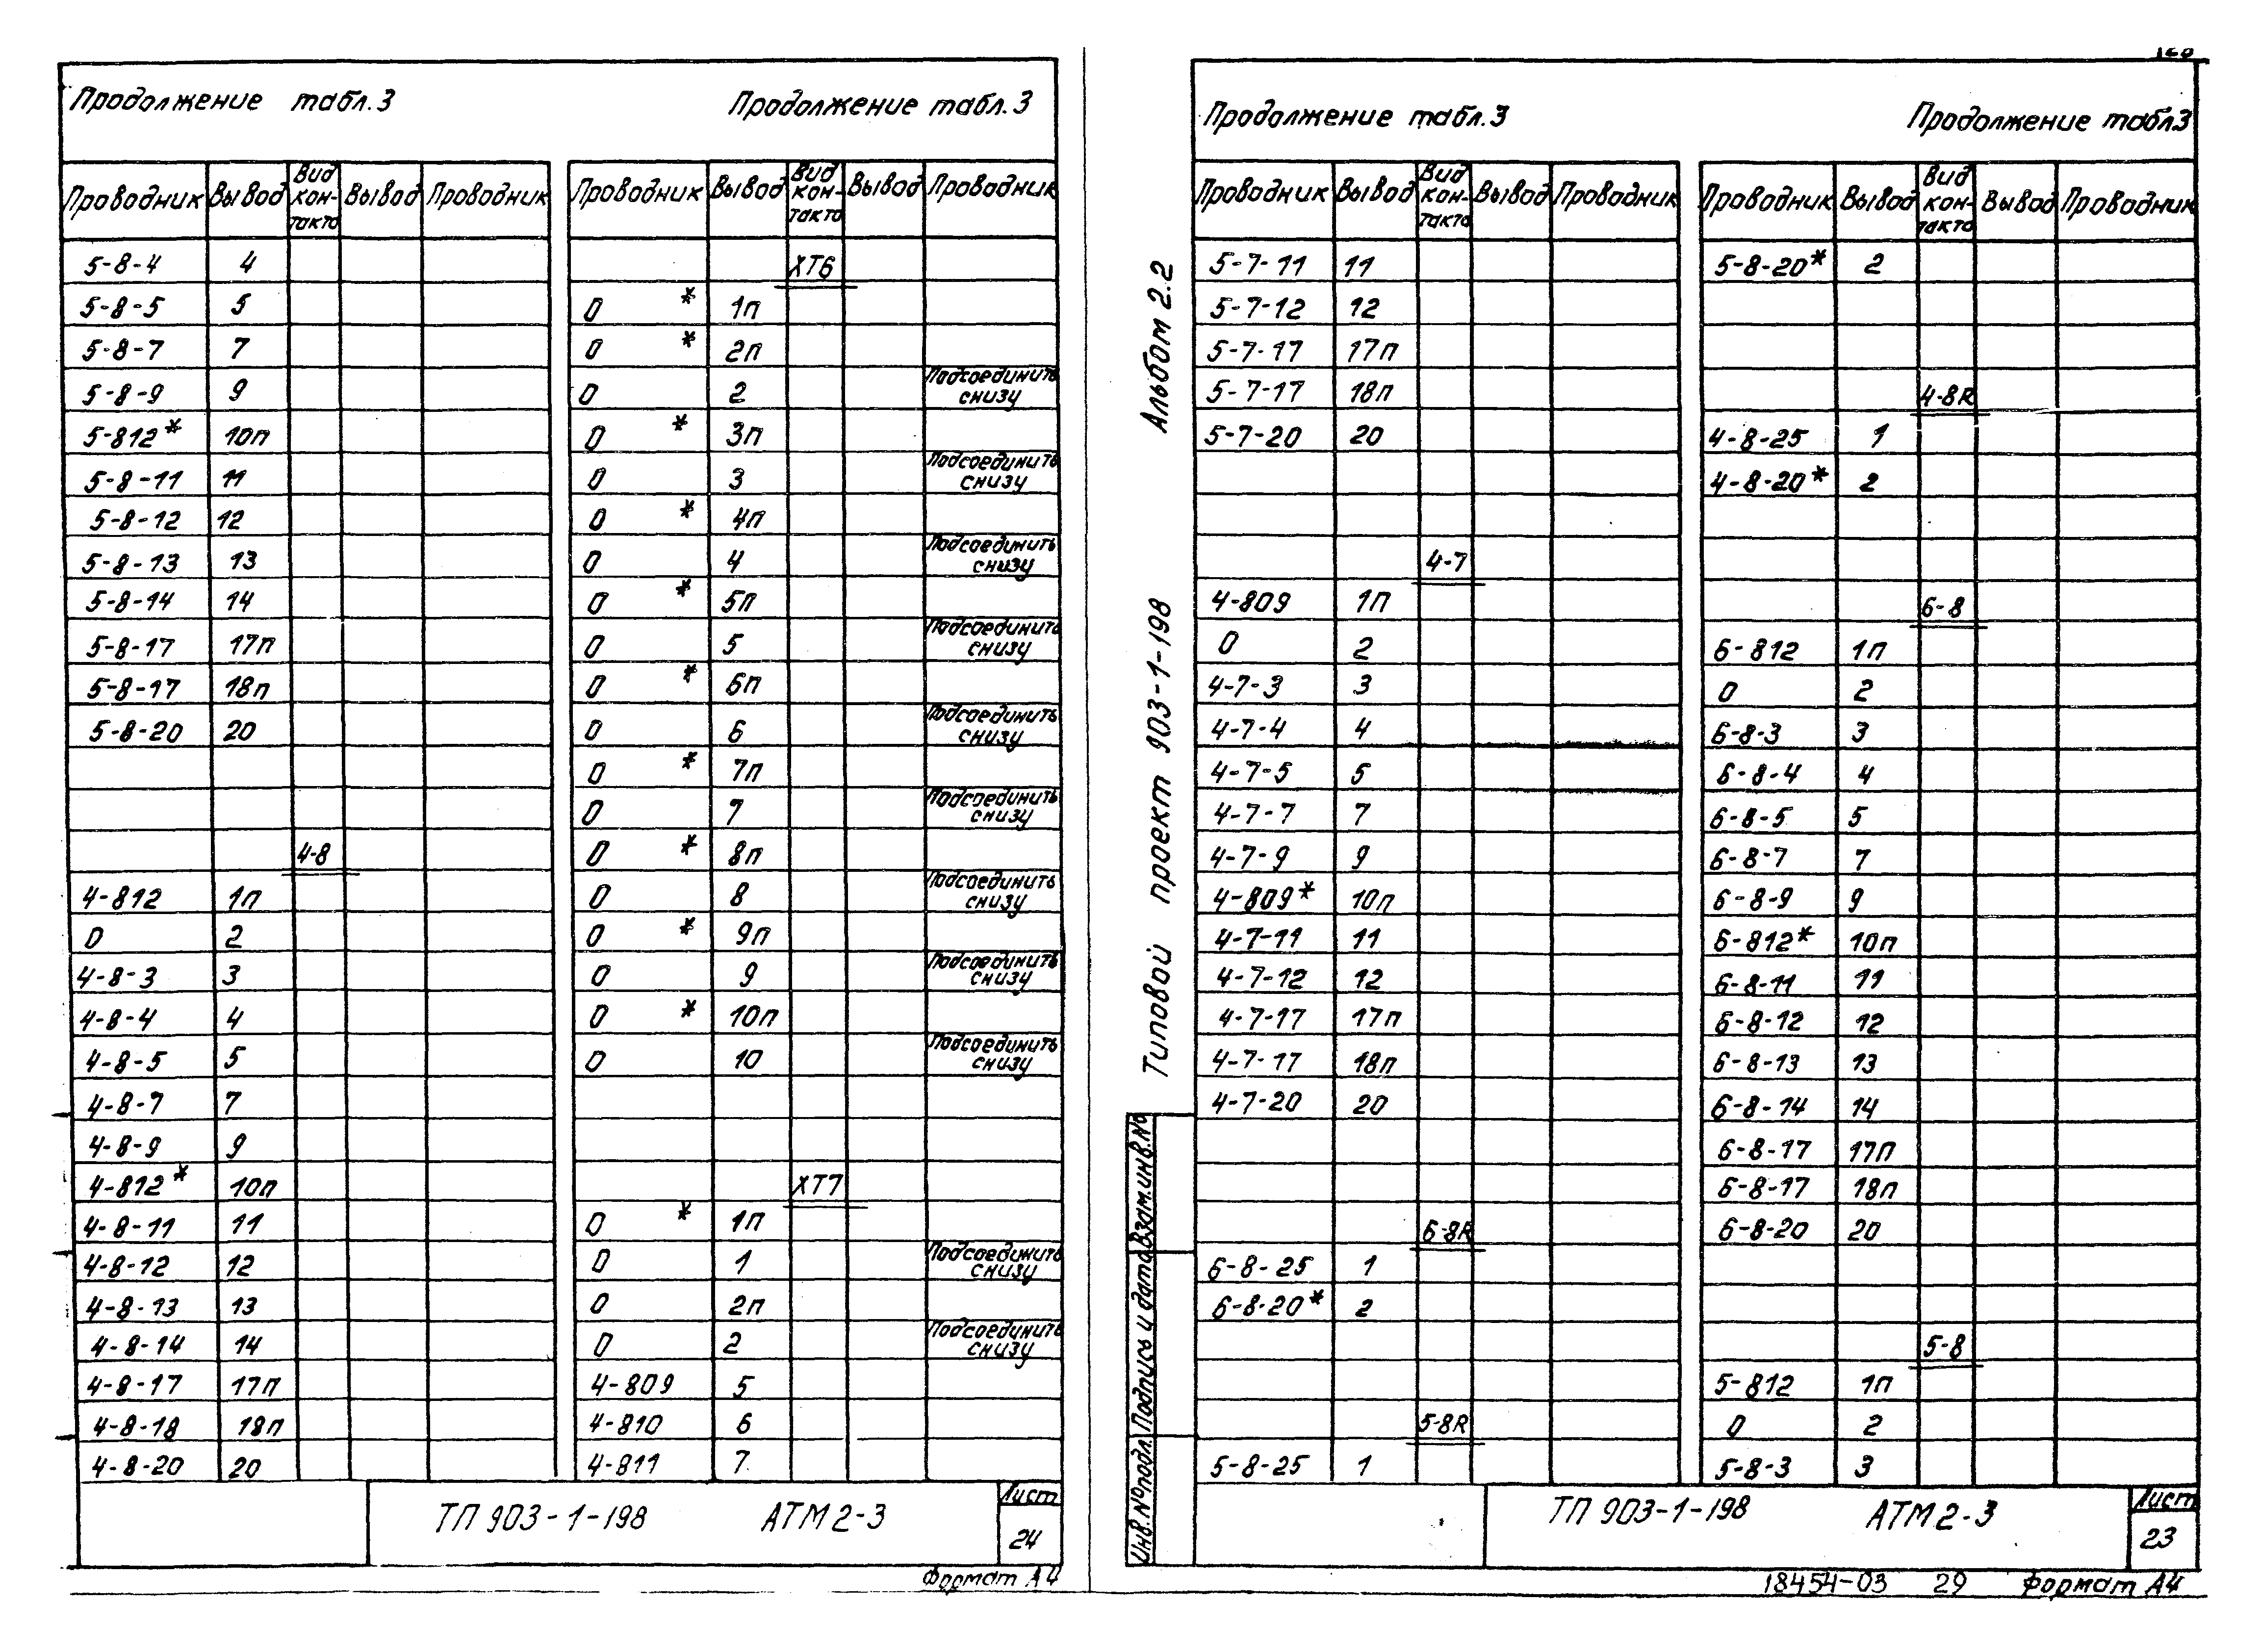 Продолжение табл.3
Проводник Вывод Вид кон- такта Вывод Проводник
5-8-4 4
5-8-5 5
5-8-7 7
5-8-9 9
5-812* 10п
5-8-11 11
5-8-12 12
5-8-13 13
5-8-14 14
5-8-17 17п
5-8-17 18п
5-8-20 20
4-8
4-812 1п
0 2
4-8-3 3
4-8-4 4
4-8-5 5
4-8-7 7
4-8-9 9
4-812* 10п
4-8-11 11
4-8-12 12
4-8-13 13
4-8-14 14
4-8-17 17п
4-8-18 18п
4-8-20 20
Продолжение табл.3
Проводник Вывод Вид кон- такта Вывод Проводник
ХТ6
0 * 1п
0 * 2п
0 2 Подсоединить снизу
0 * 3п
0 3 Подсоединить снизу
0 * 4п
0 4 Подсоединить снизу
0 * 5п
0 5 Подсоединить снизу
0 * 6п
0 6 Подсоединить снизу
0 * 7п
0 7 Подсоединить снизу
0 * 8п
0 8 Подсоединить снизу
0 * 9п
0 9 Подсоединить снизу
0 * 10п
0 10 Подсоединить снизу
ХТ7
0 * 1п
0 1 Подсоединить снизу
0 2п
0 2 Подсоединить снизу
4-809 5
4-810 6
4-811 7
ТП 903-1-198 АТМ2-3
Лист
24
Формат А4
Альбом 2.2
Типовой проект 903-1-198
Взам.инв.№
Подпись и дата
Инв.№подл.
Продолжение табл.3
Проводник Вывод Вид кон- такта Вывод Проводник
5-7-11 11
5-7-12 12
5-7-17 17п
5-7-17 18п
5-7-20 20
4-7
4-809 1п
0 2
4-7-3 3
4-7-4 4
4-7-5 5
4-7-7 7
4-7-9 9
4-809* 10п
4-7-11 11
4-7-12 12
4-7-17 17п
4-7-17 18п
4-7-20 20
6-8R
6-8-25 1
6-8-20* 2
5-8R
5-8-25 1
Продолжение табл3
Проводник Вывод Вид кон- такта Вывод Проводник
5-8-20* 2
4-8R
4-8-25 1
4-8-20* 2
6-8
6-812 1п
0 2
6-8-3 3
6-8-4 4
6-8-5 5
6-8-7 7
6-8-9 9
6-812* 10п
6-8-11 11
6-8-12 12
6-8-13 13
6-8-14 14
6-8-17 17п
6-8-17 18п
6-8-20 20
5-8
5-812 1п
0 2
5-8-3 3
ТП 903-1-198 АТМ2-3
Лист
23
18454-03 29 Формат А4